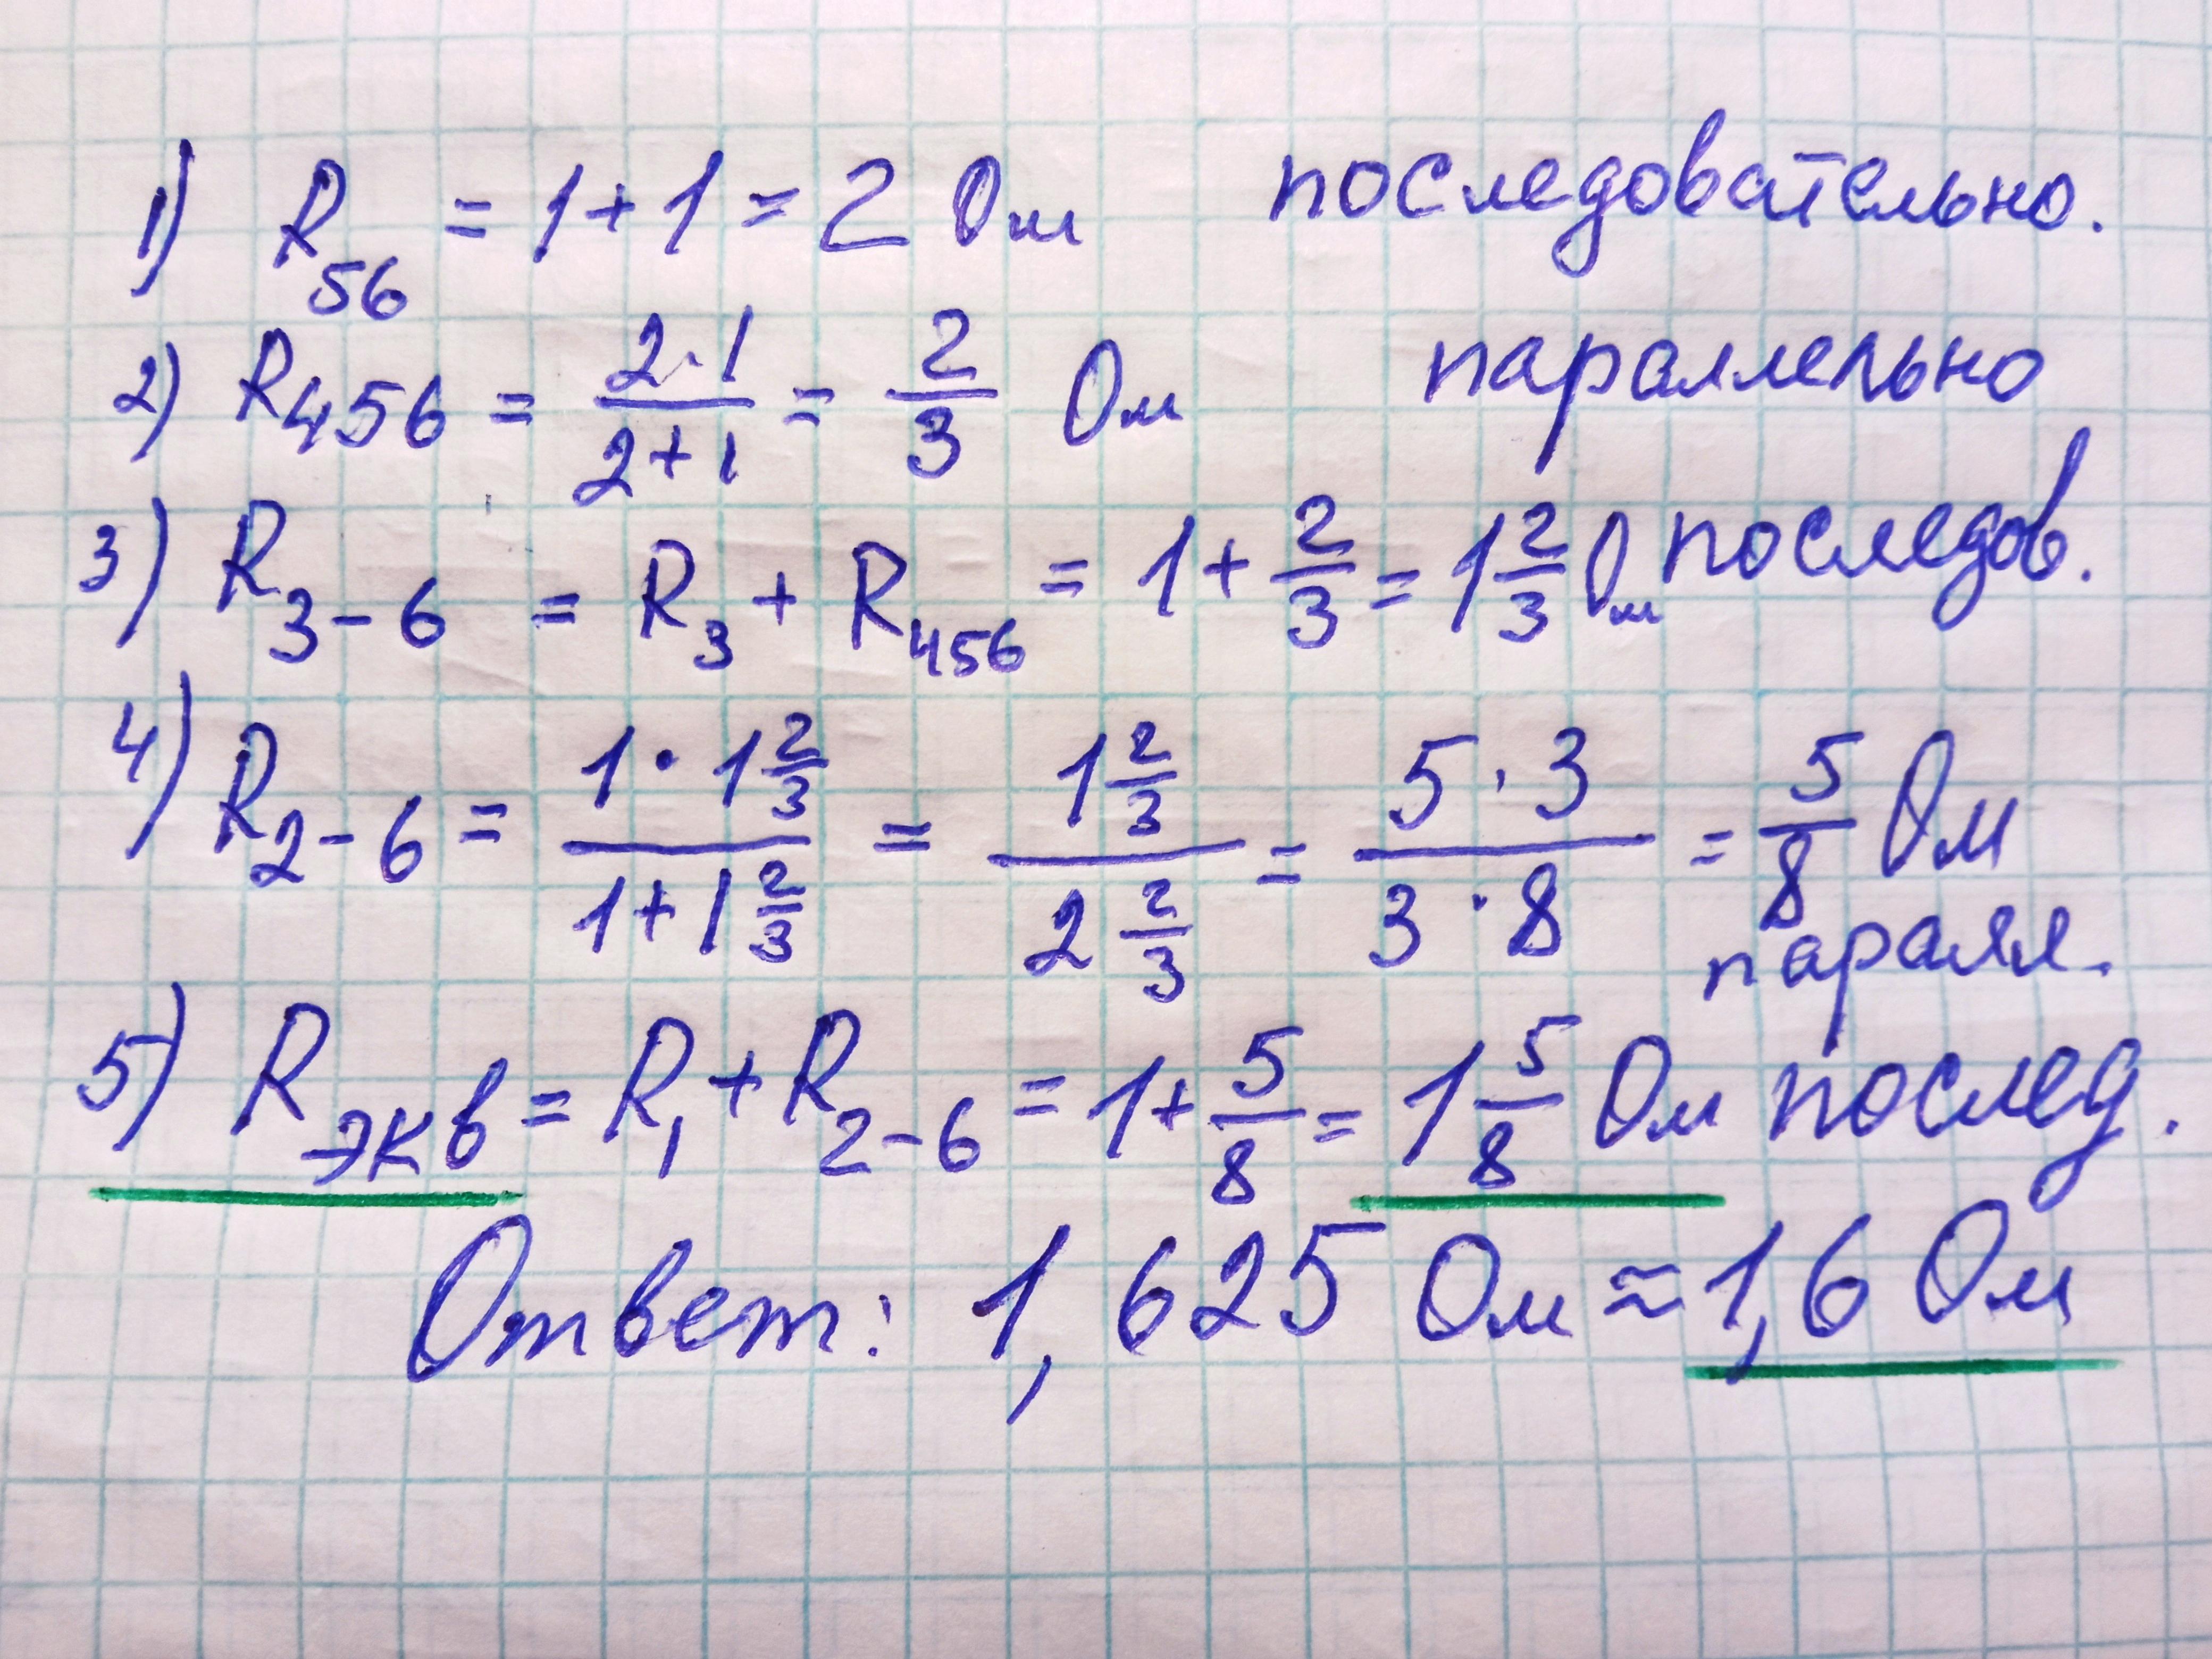 1) R₅₆ = 1 + 1 = 2 Ом последовательно.
2) R₄₅₆ = (2·1)/(2+1) = 2/3 Ом параллельно
3) R₃₋₆ = R₃ + R₄₅₆ = 1 + 2/3 = 1 2/3 Ом последов.
4) R₂₋₆ = (1 · 1 2/3)/(1 + 1 2/3) = (1 2/3)/(2 2/3) = (5 · 3)/(3 · 8) = 5/8 Ом
паралл.
5) Rэкв = R₁ + R₂₋₆ = 1 + 5/8 = 1 5/8 Ом послед.
Ответ: 1,625 Ом ≈ 1,6 Ом